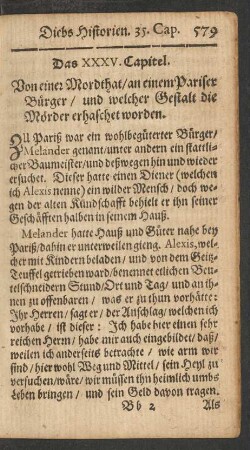 Diebs Historien. 35. Cap. 579
Das XXXV. Capitel.
Von einer Mordthat / an einem Pariser
Bürger / und welcher Gestalt die
Mörder erhaschet worden.
ZU Pariß war ein wohlbegüterter Bürger /
Melander genant / unter andern ein stattli-
cher Baumeister / und deßwegen hin und wieder
ersuchet. Dieser hatte einen Diener (welchen
ich Alexis nenne) ein wilder Mensch / doch we-
gen der alten Kundschafft behielt er ihn seiner
Geschäfften halben in seinem Hauß.
Melander hatte Hauß und Güter nahe bey
Pariß / dahin er unterweilen gieng. Alexis, wel-
cher mit Kindern beladen / und von dem Geitz-
Teuffel getrieben ward / benennet etlichen Beu-
telschneidern Stund / Ort und Tag / und an ih-
nen zu offenbaren / was er zu thun vorhätte:
Ihr Herren / sagt er / der Anschlag / welchen ich
vorhabe / ist dieser: Ich habe hier einen sehr
reichen Herrn / habe mir auch eingebildet / daß /
weilen ich anderseits betrachte / wie arm wir
sind / hier wohl Weg und Mittel / sein Heyl zu
versuchen / wäre / wir müssen ihn heimlich umbs
Leben bringen / und sein Geld davon tragen.
Bb 2 Als